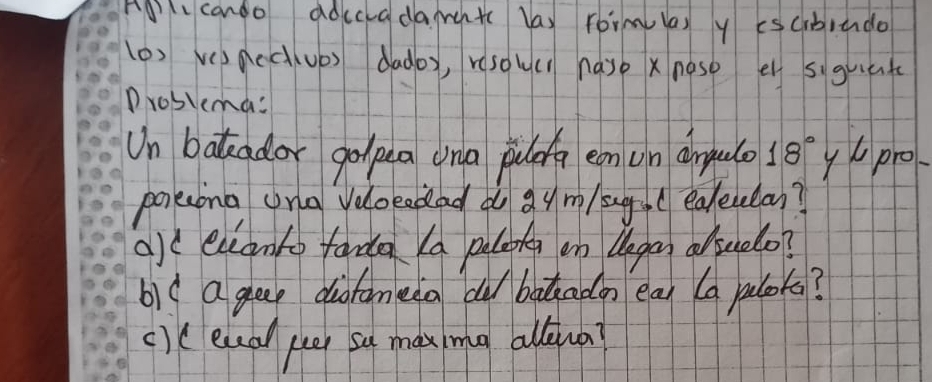 Aplicando adecuadamente las fórmulas y escibiendo
los respectivos dados, resolver paso x paso el siguiente
Problema:
Un bateador golpea una pelota con un ángulo 18° y le pro-
porciona una velocidad de 24 m/seg. ¿ calcular?
a) ¿ cuanto tarda la pelota en llegar al suelo?
b) ¿ a que distancia del bateador cae la pelota?
c) ¿ cual fue su maxima altura?